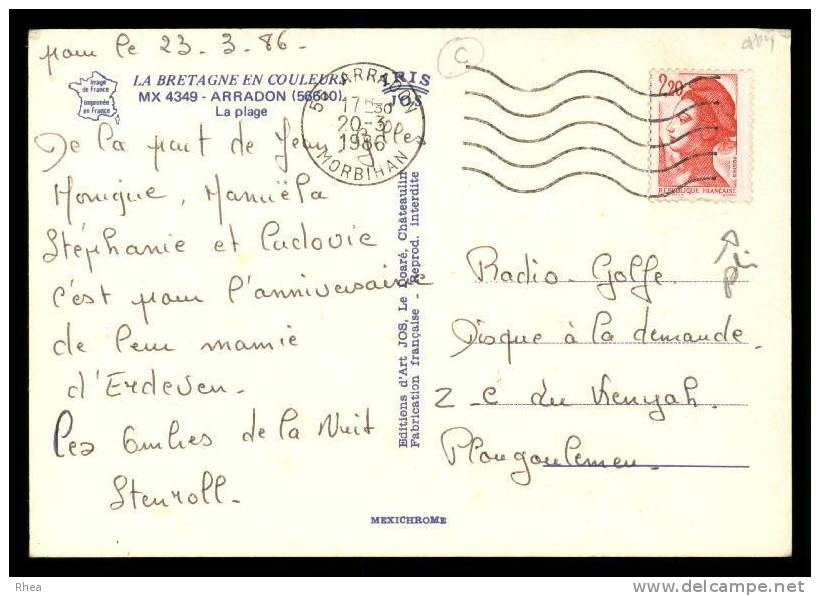 pour le 23-3-86-
C
Image de France
Imprimée en France
LA BRETAGNE EN COULEURS
MX 4349 - ARRADON (56610)
La plage
IRIS
JOS
56 ARRADON
17H30
20-3
1986
MORBIHAN
2,20
POSTES
REPUBLIQUE FRANÇAISE
De la part de Jean Gilles
Monique, Manuëla
Stéphanie et Ludovic
c'est pour l'anniversaire
de leur mamie
d'Erdeven.
Les Ombres de la Nuit
Stenroll-
Editions d'Art JOS, Le Doaré, Châteaulin
Fabrication française - Reprod. interdite
Radio-Golfe.
Disque à la demande.
Z-C du Kenyah.
Plougoulemeu.
MEXICHROME
Rhea
www.delcampe.net